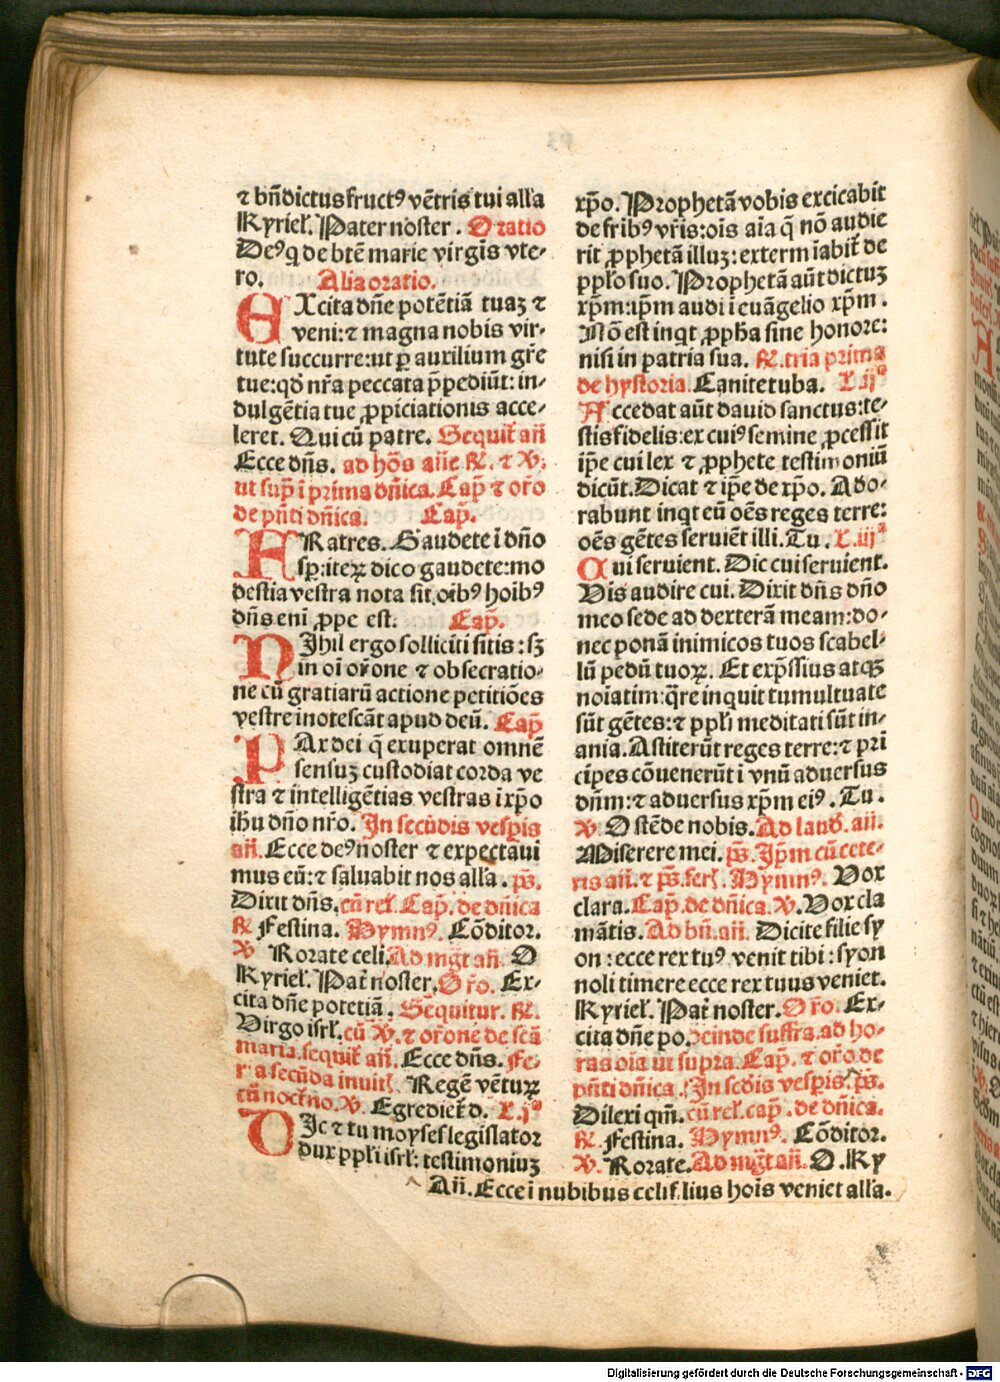 ⁊ bn̄dictus fructꝰ vētris tui alľa
Kyrieł. Pater noster. Oratio
Deꝰ q̇ de btē marie virgīs vte-
ro. Alia oratio.
EXcita dn̄e potētiā tuaꝫ ⁊
veni: ⁊ magna nobis vir-
tute succurre: ut ꝑ auxilium gr̄e
tue: qd̄ nr̄a peccata p̄pediūt: in-
dulgētia tue ꝓpiciationis acce-
leret. Qui cū patre. Sequit̄ an̄
Ecce dn̄s. ad hōs an̄e ꝶ. ⁊ ꝟ.
ut sup̄ ī prima dn̄ica. Cap̄ ⁊ or̄o
de pn̄ti dn̄ica. Cap̄.
FRatres. Gaudete ī dn̄o
sp̄: iteꝝ dico gaudete: mo
destia vestra nota sit oībꝰ hoībꝰ
dn̄s enī ꝓpe est. Cap̄.
NIhil ergo solliciti sitis: sꝫ
in oī or̄one ⁊ obsecratio-
ne cū gratiarū actione petitiōes
vestre inotescāt apud deū. Cap̄
PAx dei q̄ exuperat omnē
sensuꝫ custodiat corda ve
stra ⁊ intelligētias vestras ī xp̄o
ihū dn̄o nr̄o. In secūdis vesp̄is
an̄. Ecce deꝰ noster ⁊ expectaui
mus eū: ⁊ saluabit nos alľa. ps̄.
Dixit dn̄s. cū reł. Cap̄. de dn̄ica
ꝶ Festina. Hymnꝰ. Cōditor.
ꝟ Rorate celi. Ad mgt̄ an̄. O
Kyrieł. Pat̄ noster. Or̄o. Ex-
cita dn̄e potētiā. Sequitur. ꝶ.
Virgo isrł. cū ꝟ. ⁊ or̄one de scā
maria. sequit̄ an̄. Ecce dn̄s. Fe-
ria secūda inuit̄. Regē vēturꝝ
cū noct̄no. ꝟ. Egrediet̄ d. L. jᵃ
DIc ⁊ tu moyses legislator
dux ppłi isrł: testimoniuꝫ
xp̄o. Prophetā vobis excicabit
de fribꝰ vr̄is: oīs aīa q̄ nō audie
rit ꝓphetā illuꝫ: extermīabit̄ de
ppło suo. Prophetā aūt dictuꝫ
xp̄m: ip̄m audi ī euāgelio xp̄m.
Nō est inqt ꝓpħa sine honore:
nisi in patria sua. ꝶ. tria prima
de hystoria. Canite tuba. L. ijᵃ
Accedat aūt dauid sanctus: te-
stis fidelis: ex cuiꝰ semine ꝓcessit
ip̄e cui lex ⁊ ꝓphete testimoniū
dicūt. Dicat ⁊ ip̄e de xp̄o. Ado-
rabunt inqt eū oēs reges terre:
oēs gētes seruiēt illi. Tu. L. iijᵃ
Cui seruient. Dic cui seruient.
Vis audire cui. Dixit dn̄s dn̄o
meo sede ad dexterā meam: do-
nec ponā inimicos tuos scabel-
lū pedū tuoꝝ. Et exp̄ssius atqꝫ
noīatim: q̄re inquit tumultuate
sūt gētes: ⁊ ppłi meditati sūt in-
ania. Astiterūt reges terre: ⁊ pri
cipes cōuenerūt ī vnū aduersus
dn̄m: ⁊ aduersus xp̄m eiꝰ. Tu.
ꝟ. Ostēde nobis. Ad laud. an̄.
Miserere mei. ps̄. Ip̄m cū cete-
ris an̄. ⁊ ps̄. ferł. Hymnꝰ. Vox
clara. Cap̄. de dn̄ica. ꝟ. Vox cla
mātis. Ad bn̄. an̄. Dicite filie sy
on: ecce rex tuꝰ venit tibi: syon
noli timere ecce rex tuus veniet.
Kyrieł. Pat̄ noster. Or̄o. Ex-
cita dn̄e po. Deinde suffra. ad ho-
ras oīa ut supra. Cap̄. ⁊ or̄o de
pn̄ti dn̄ica. In scd̄is vesp̄is. ps̄.
Dilexi qm̄. cū reł. cap̄. de dn̄ica.
ꝶ. Festina. Hymnꝰ. Cōditor.
ꝟ. Rorate. Ad mgt̄ an̄. O. Ky
An̄. Ecce ī nubibus celi filius hoīs veniet alľa.
Digitalisierung gefördert durch die Deutsche Forschungsgemeinschaft - DFG